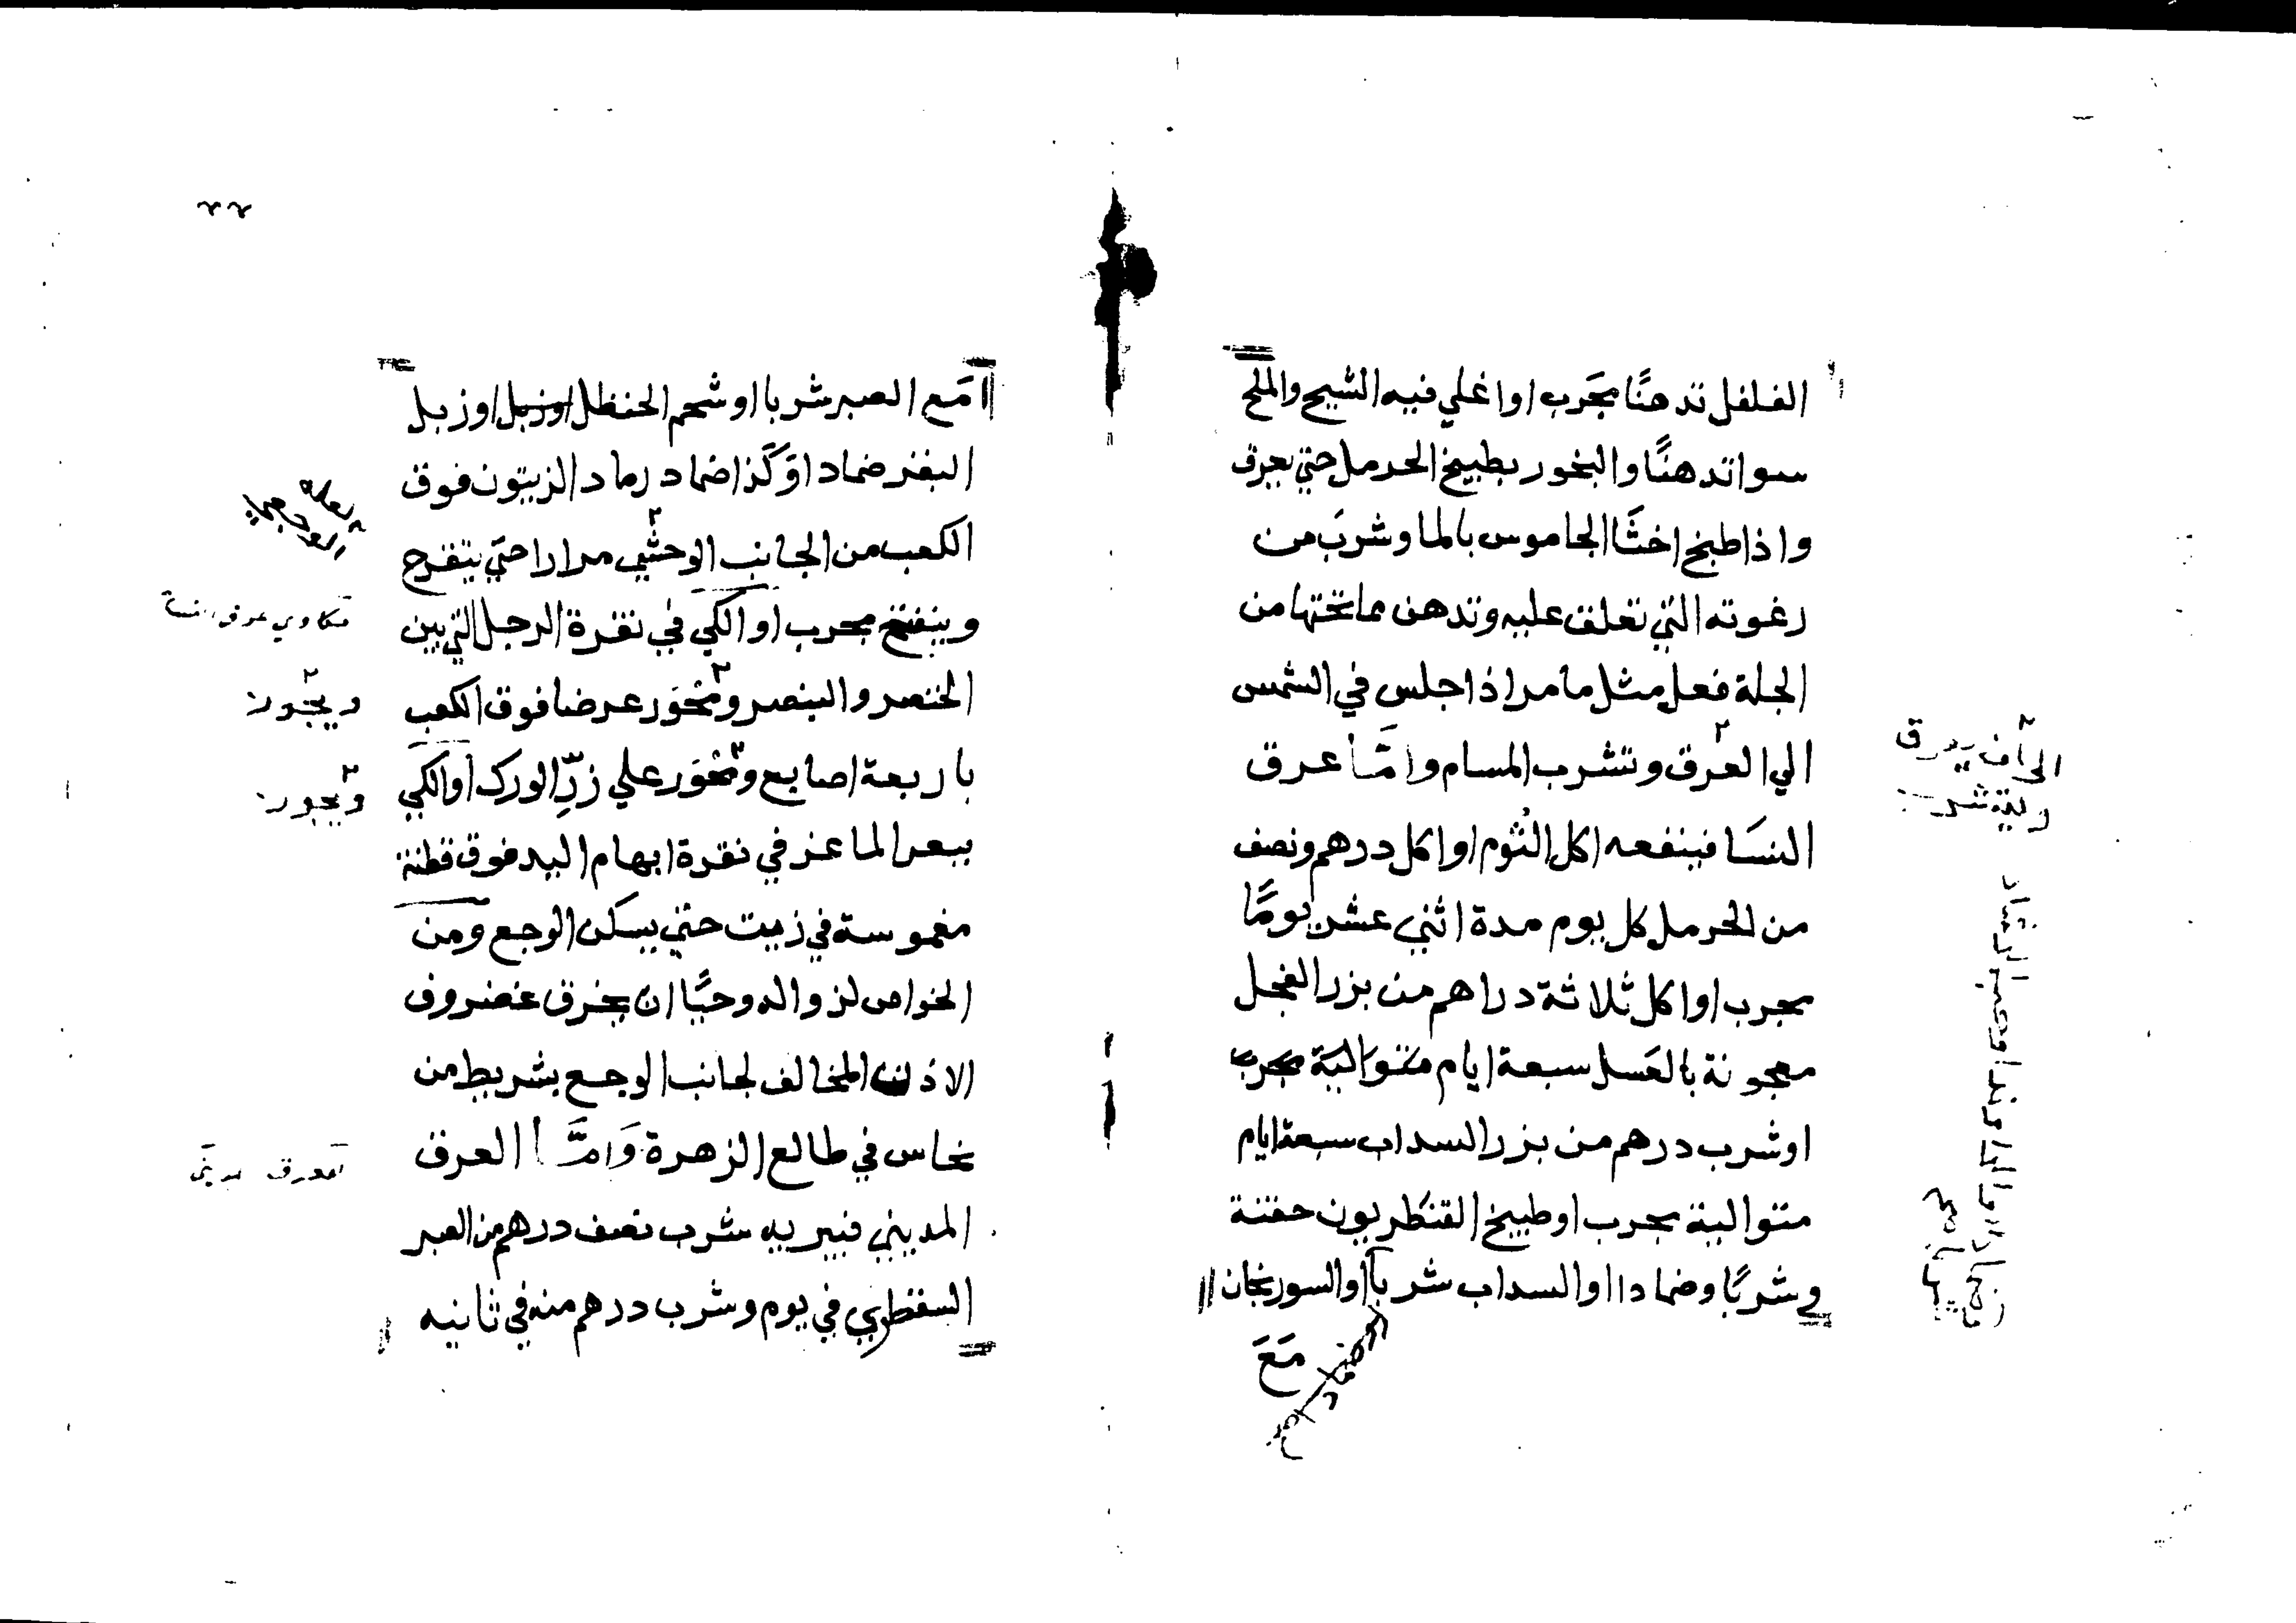 الفلفل تدهنًا مجَرب او اغلي فيه الشيح والملح
سوا تدهنًا والبخور بطبيخ الحرمل حتي يعرق
واذا طبخ اخثَا الجاموس بالما وشربَ من
رغوته التي تعلق عليه وتدهن مما تحتها من
الجلة فعل مثل ما مر اذا جلس في الشمس
الي العرق وتشرب المسام وامَّا عرق
النسَا فينفعه اكل الثوم او اكل درهم ونصف
من الحرمل كل يوم مدة اثني عشر يومًا
مجرب او اكل ثلاثة دراهم من بزر الفجل
معجونة بالعَسل سبعة ايام متواليَة مجرب
او شرب درهم من بزر السداب سبعة ايام
متوالية مجرب او طبيخ القنطريون حقنة
وشربًا وضمادا او السداب شربًا او السورنجان
مَعَ
٢٢
مَع الصبر شربا او شحم الحنظل او زبل او زبل
البقر ضمادا وَكَذا ضماد رماد الزيتون فوق
الكعب من الجانب الوحشي مرارا حتي يتقرح
وينفتح مجرب او الكَي في نقرة الرجل التي بين
الخنصر والبنصر ومحوَر عرضا فوق الكعب
باربعة اصابع ومحوَر علي زرِّ الورك او الكي
ببعر الماعز في نقرة ابهام اليد فوق قطنة
مغموسة في زيت حتي يسكن الوجع ومن
الخواص لزواله وحيًّا ان يخرق غضروف
الاذن المخالف لجانب الوجع بشريط من
نحاس في طالع الزهرة وَامَّا العرق
المديني فيبريه شرب نصف درهم من الصبر
السقطري في يوم وشرب درهم منه في ثانيه
مكاوي عرق النسا
ويجور
ويجور
لعرق مديني